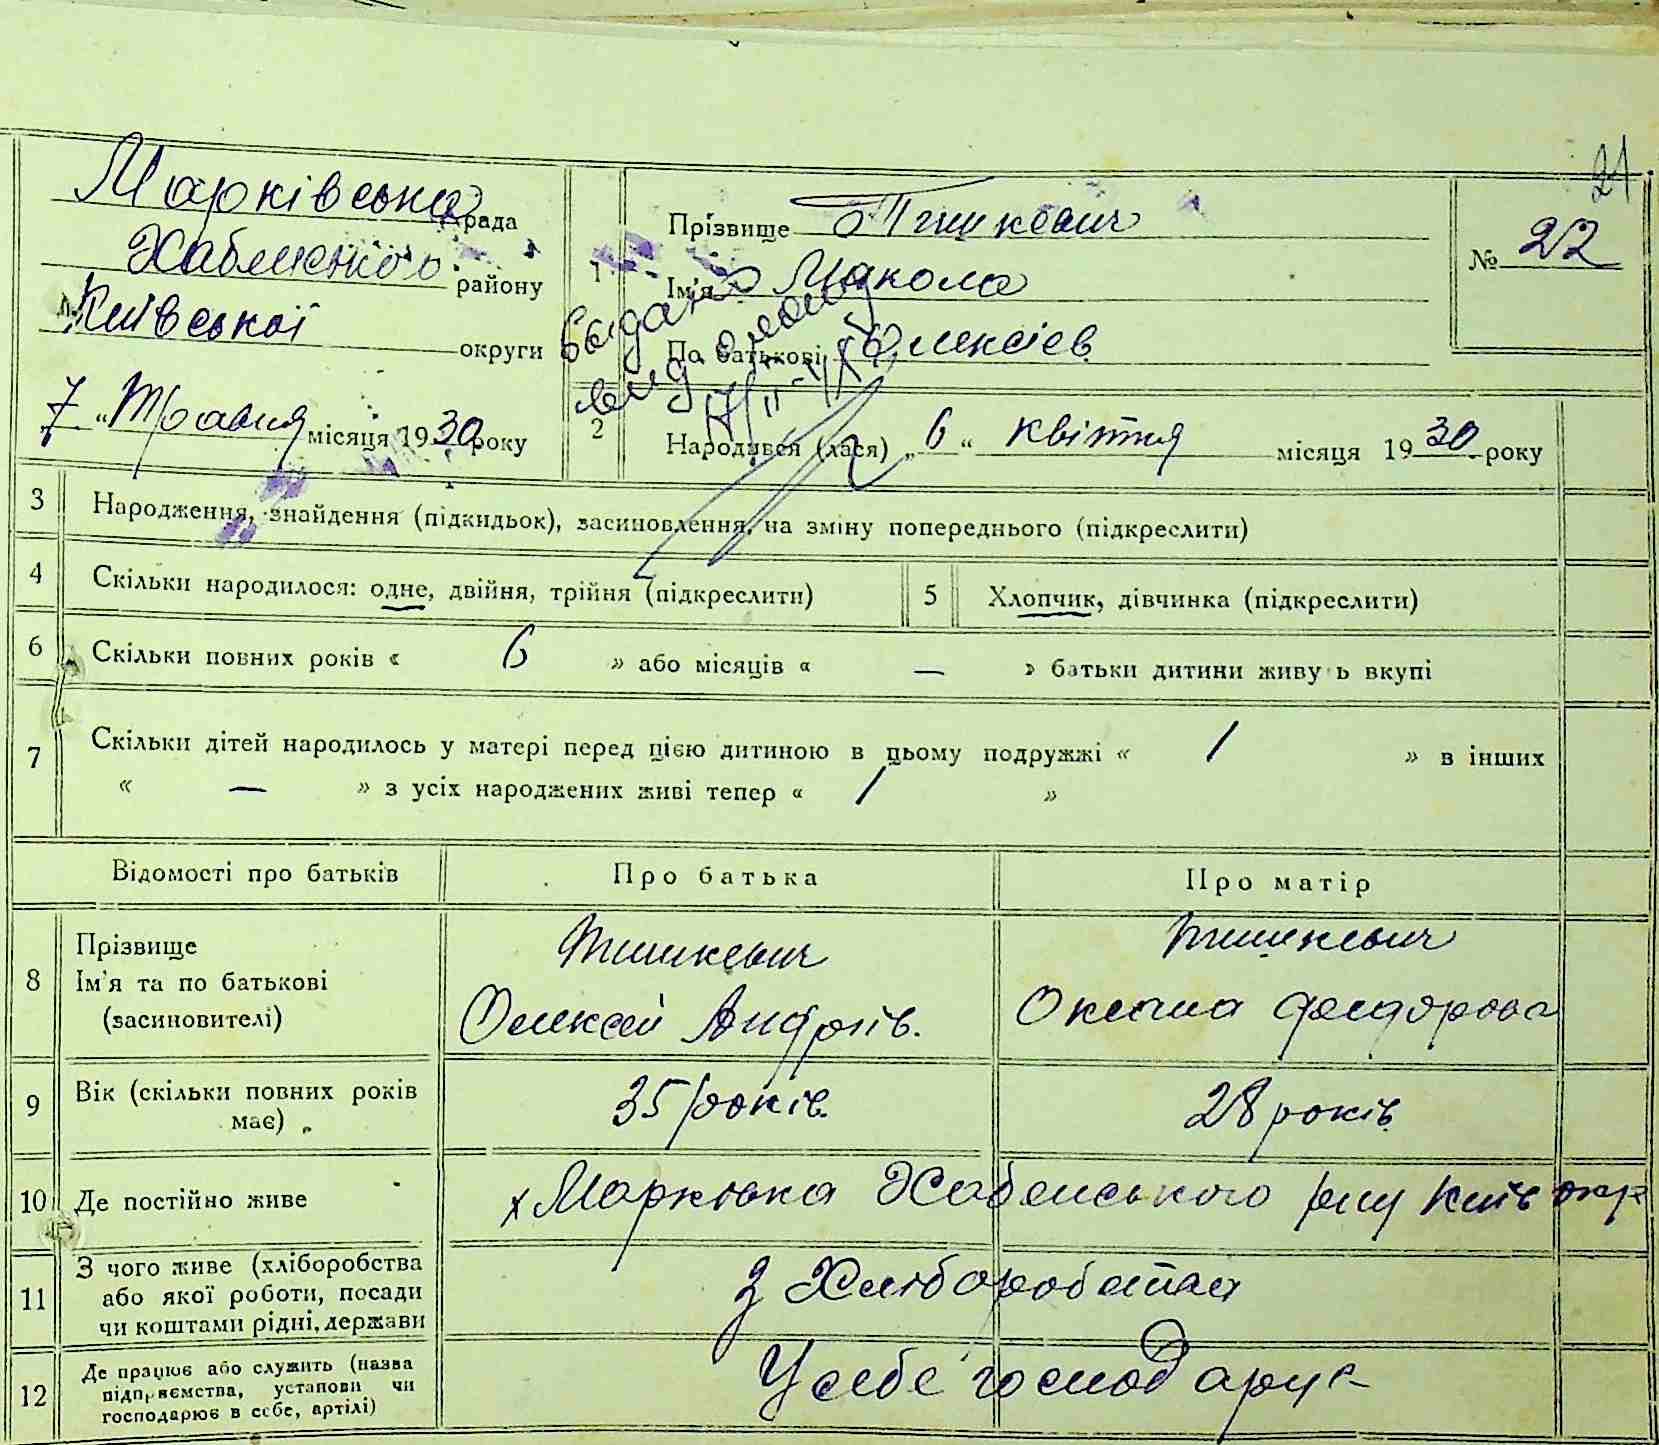 21
Марківська рада
Хабенського району
Київської округи
„7“ Травня місяця 1930 року
1
Прізвище Тишкевич
Ім'я Микола
По батькові Олексієв
№ 22
2
Народився (лася) „6“ квітня місяця 1930 року
3 Народження, знайдення (підкидьок), засиновлення, на зміну попереднього (підкреслити)
4 Скільки народилося: одне, двійня, трійня (підкреслити) 5 Хлопчик, дівчинка (підкреслити)
6 Скільки повних років « 6 » або місяців « — » батьки дитини живуть вкупі
7 Скільки дітей народилось у матері перед цією дитиною в цьому подружжі « 1 » в інших
« — » з усіх народжених живі тепер « 1 »
Відомості про батьків Про батька Про матір
8 Прізвище Тишкевич Тишкевич
Ім'я та по батькові Олексій Андріїв. Оксана Федорова
(засиновителі)
9 Вік (скільки повних років має) 35 років. 28 років
10 Де постійно живе х Марківка Хабенського р-ну Київ окр
11 З чого живе (хліборобства
або якої роботи, посади
чи коштами рідні, держави
З Хліборобства
12 Де працює або служить (назва
підприємства, установи чи
господарює в себе, артілі)
У себе господарує